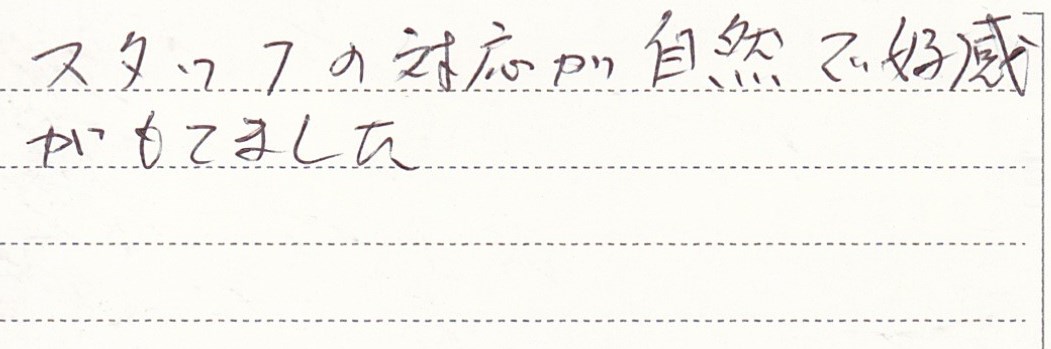 スタッフの対応が自然で好感
がもてました